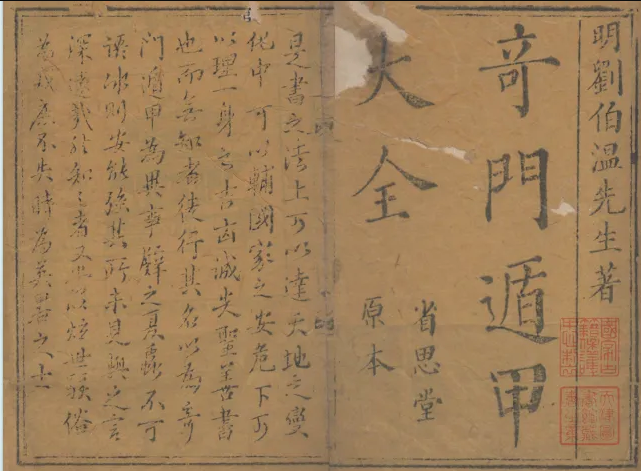 明劉伯温先生著
竒門遁甲
大全
省思堂
原本
是書之法上可以達天地之變
化中可以輔國家之安危下可
以理一身之吉凶誠失聖至書
也而無知者使行其名以為竒
門遁甲為異事譬之夏蟲不可
語冰則安能強其所未見與之言
深遠哉於知之者又以炫世俗
為戒庶不失時為之士